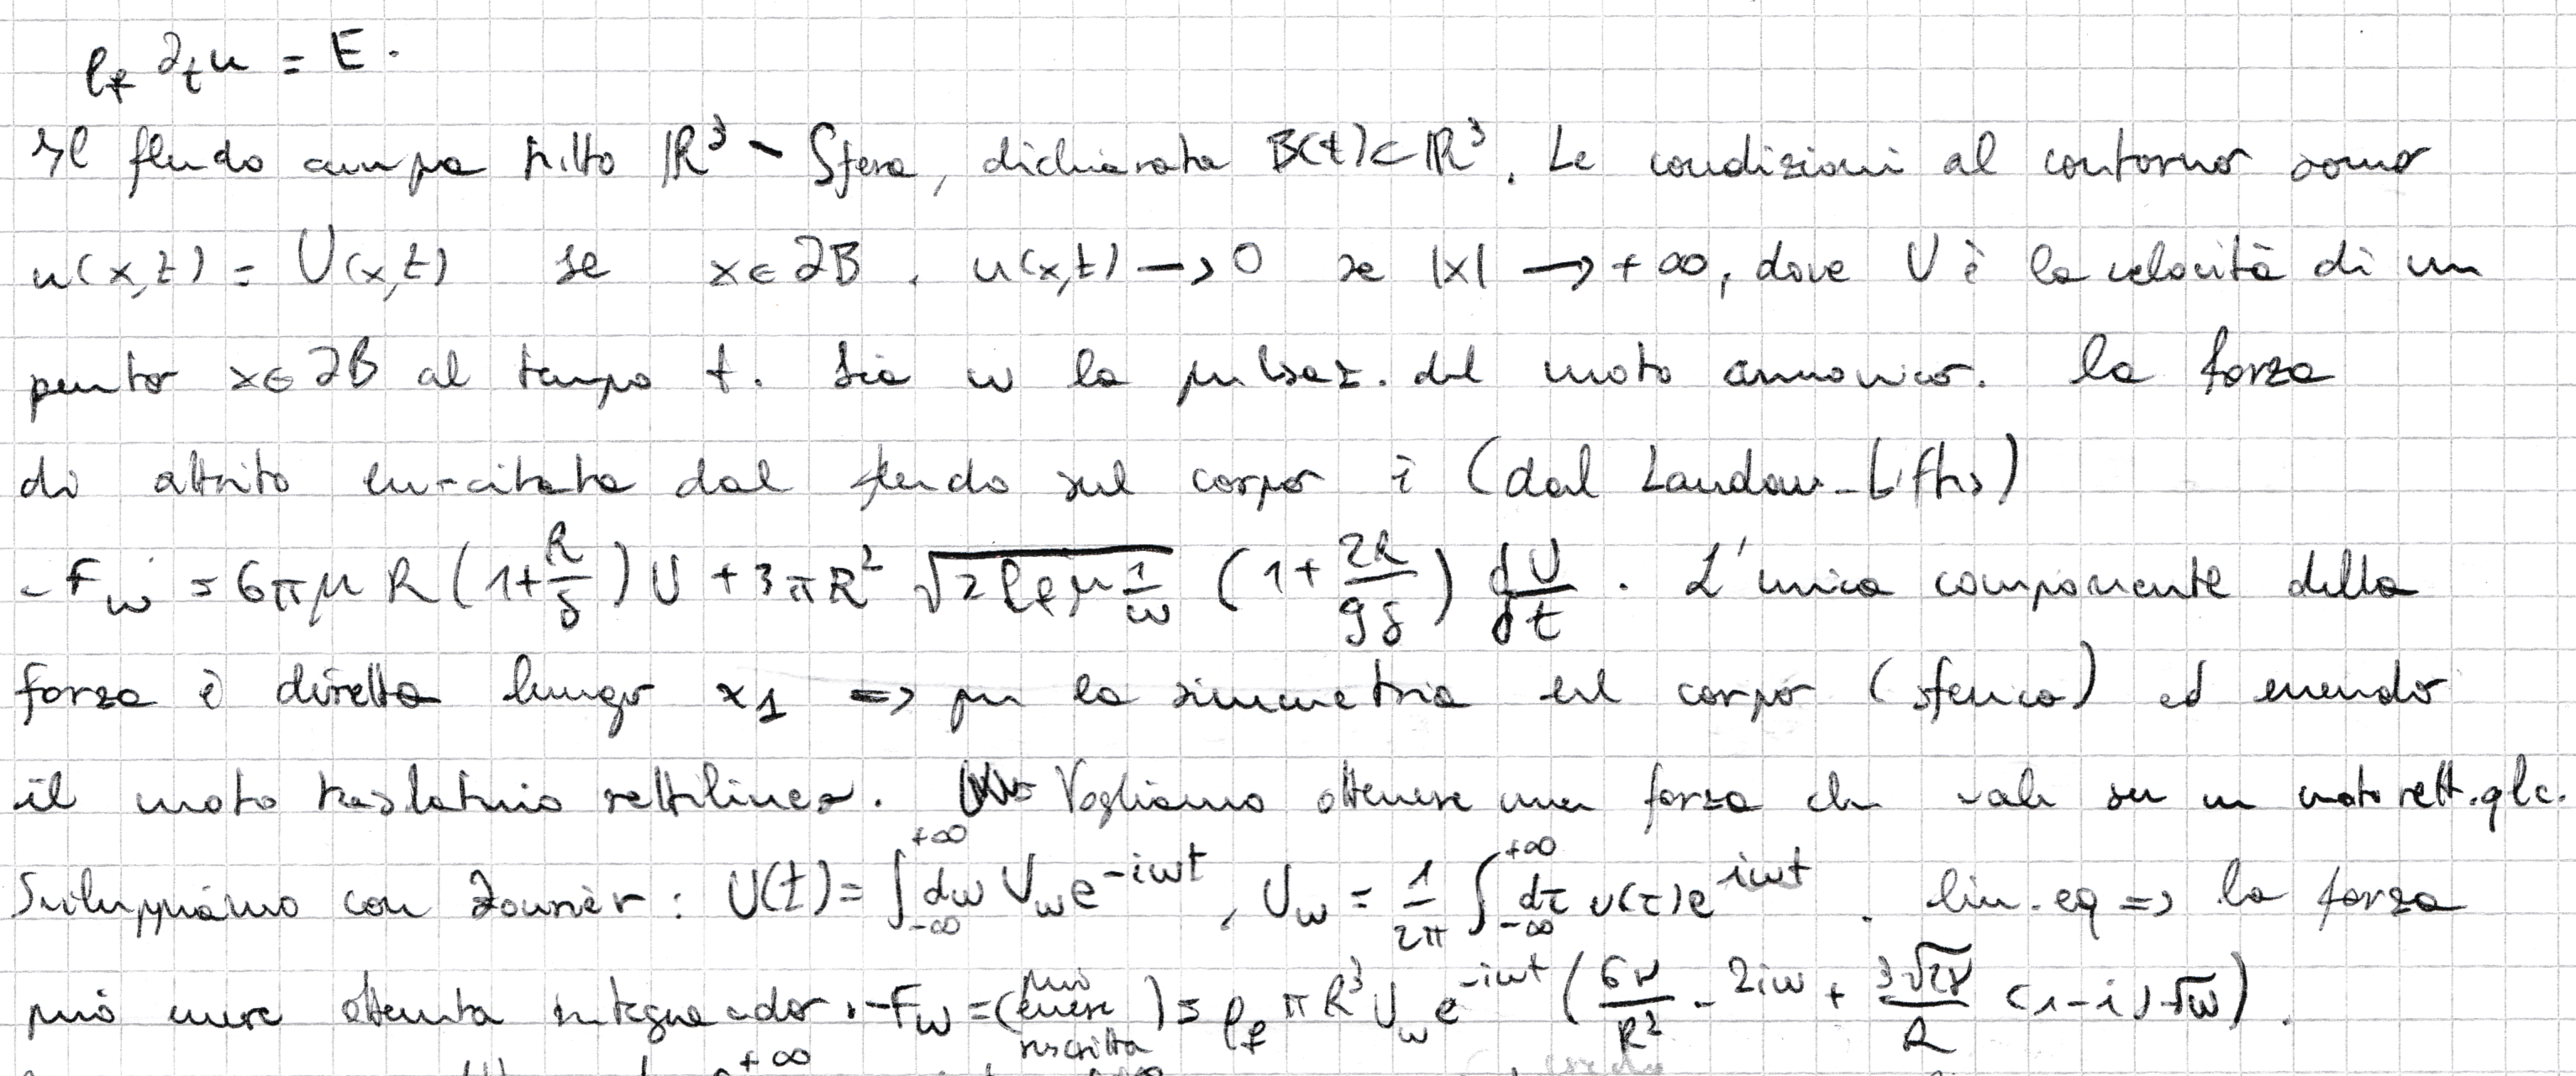 ρ_f ∂_t u = E .
Il fluido occupa tutto ℝ³ ∖ Sfera, dichiarata B(t) ⊂ ℝ³. Le condizioni al contorno sono
u(x,t) = U(x,t) se x ∈ ∂B , u(x,t) → 0 se |x| → +∞, dove U è la velocità di un
punto x ∈ ∂B al tempo t. Sia ω la pulsaz. del moto armonico. La forza
di attrito esercitata dal fluido sul corpo è (dal Landau-Lifts)
-F_ω = 6πμ R (1 + R/δ) U + 3πR² √(2 ρ_f μ 1/ω) (1 + 2R/9δ) dU/dt . L'unica componente della
forza è diretta lungo x_1 => per la simmetria del corpo (sferica) ed essendo
il moto traslatorio rettilineo. Vogliamo ottenere una forza che vale su un moto rett. qlc.
Sviluppiamo con Fourier : U(t) = ∫_{-∞}^{+∞} dω U_ω e^{-iωt} , U_ω = 1/2π ∫_{-∞}^{+∞} dτ U(τ) e^{iωτ} . lin. eq => la forza
può essere ottenuta integrando . -F_ω = (può essere riscritta) = ρ_f π R³ U_ω e^{-iωt} (6ν/R² - 2iω + 3√2ν/R (1-i) √ω) .
+∞